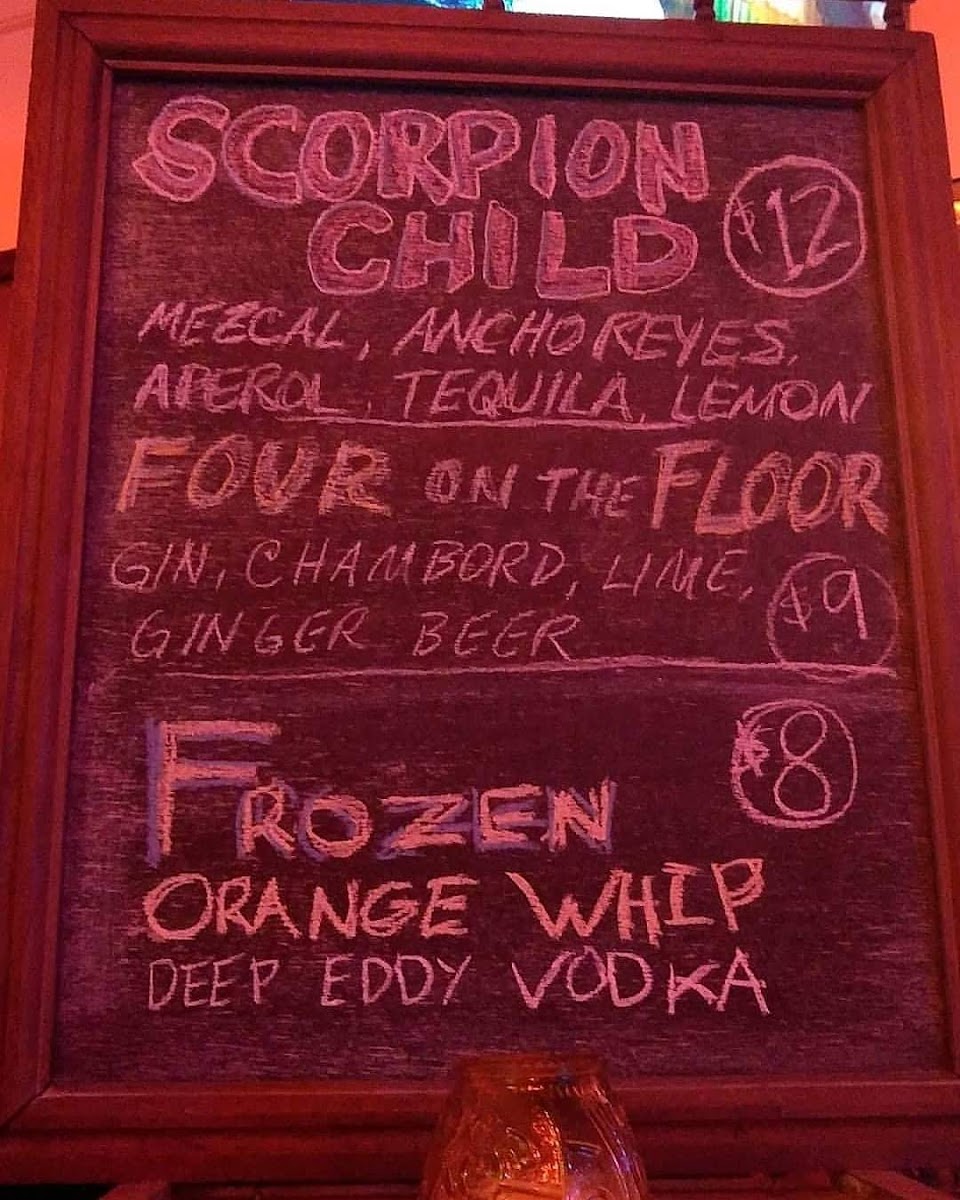 SCORPION
CHILD $12
MEZCAL, ANCHO REYES,
APEROL, TEQUILA, LEMON
FOUR ON THE FLOOR
GIN, CHAMBORD, LIME,
GINGER BEER $9
FROZEN $8
ORANGE WHIP
DEEP EDDY VODKA